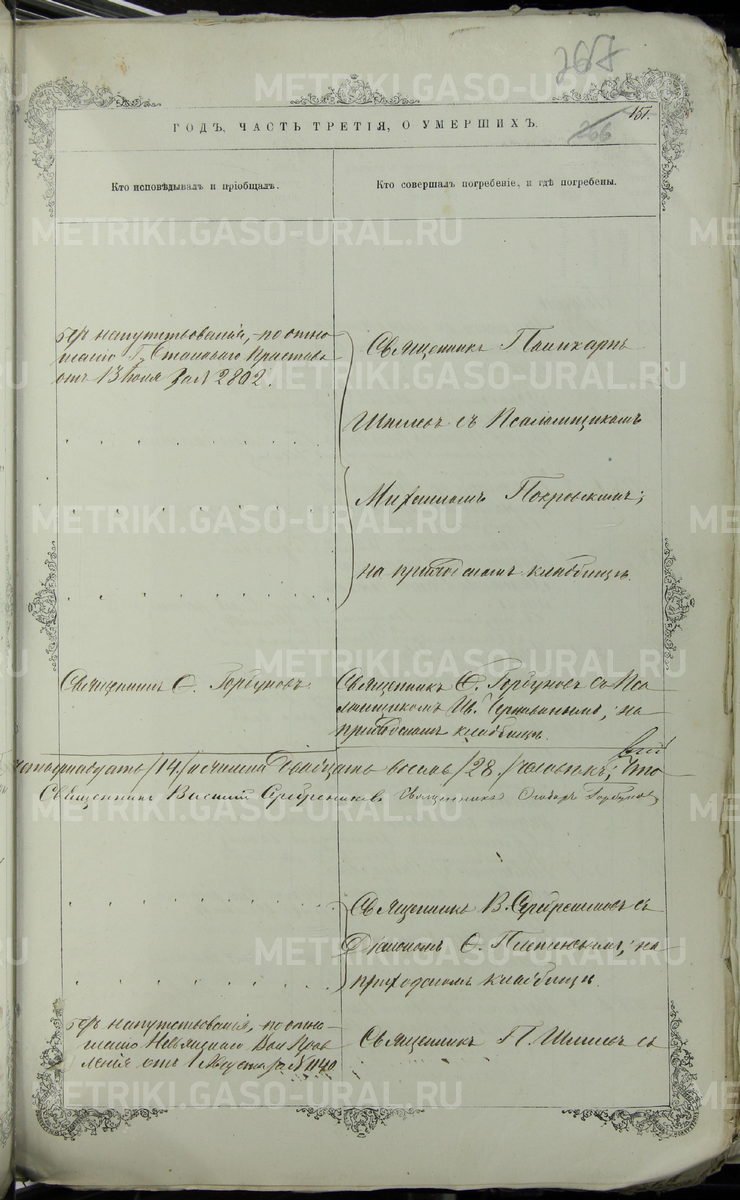 267
151.
266
ГОДЪ, ЧАСТЬ ТРЕТІЯ, О УМЕРШИХЪ.
Кто исповѣдывалъ и пріобщалъ.
Кто совершалъ погребеніе, и гдѣ погребены.
безъ напутствованія, по отно-
шенію Г. Становаго Пристава
отъ 13 Іюля за № 2802.
Священникъ Поликарпъ
съ Псаломщикомъ
Покровскимъ;
на приходскомъ кладбищѣ.
Священникъ Ѳ. Горбуновъ
Священникъ Ѳ. Горбуновъ съ Пса-
ломщикомъ Ив. на
приходскомъ кладбищѣ.
/14./ восемь /28./ человѣкъ; Что
Священникъ Василій Серебренниковъ Священникъ Ѳеодоръ Горбуновъ
Священникъ В. Серебренниковъ съ
Діакономъ Ѳ. на
приходскомъ кладбищѣ
безъ напутствованія, по отно-
шенію Невьянскаго Вол. Прав-
ленія отъ 1 Августа за № 1140
Священникъ П. съ
METRIKI.GASO-URAL.RU